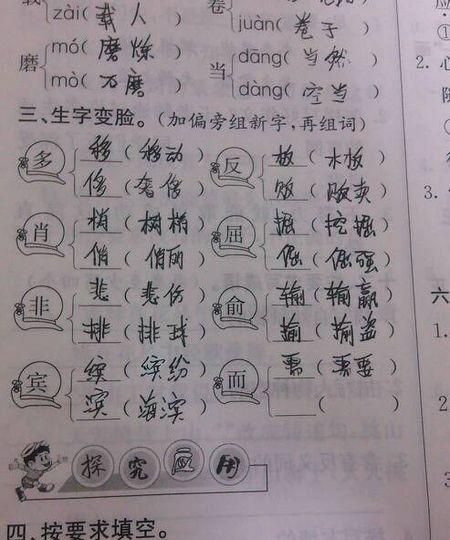 zài(载人) 卷
mó(磨炼) juàn(卷子)
磨 当 dāng(当然)
mò(石磨) dàng(空当)
三、生字变脸。(加偏旁组新字,再组词)
多 移(移动) 反 板(木板)
侈(奢侈) 贩(贩卖)
肖 梢(树梢) 屈 掘(挖掘)
俏(俏丽) 倔(倔强)
非 悲(悲伤) 俞 输(输赢)
排(排球) 揄(揄盗)
宾 缤(缤纷) 而 需(需要)
滨(海滨) ( )
探究应用
四、按要求填空。
2. 心
3.
六
1.
2
3